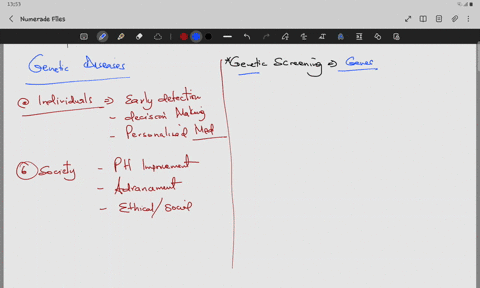 13:53
Numerade Files
Genetic Diseases
@ Individuals => Early detection
- decision Making
- Personalised Med
⑥ Society - PH Improvement
- Advancment
- Ethical/Social
*Genetic Screening => Genes